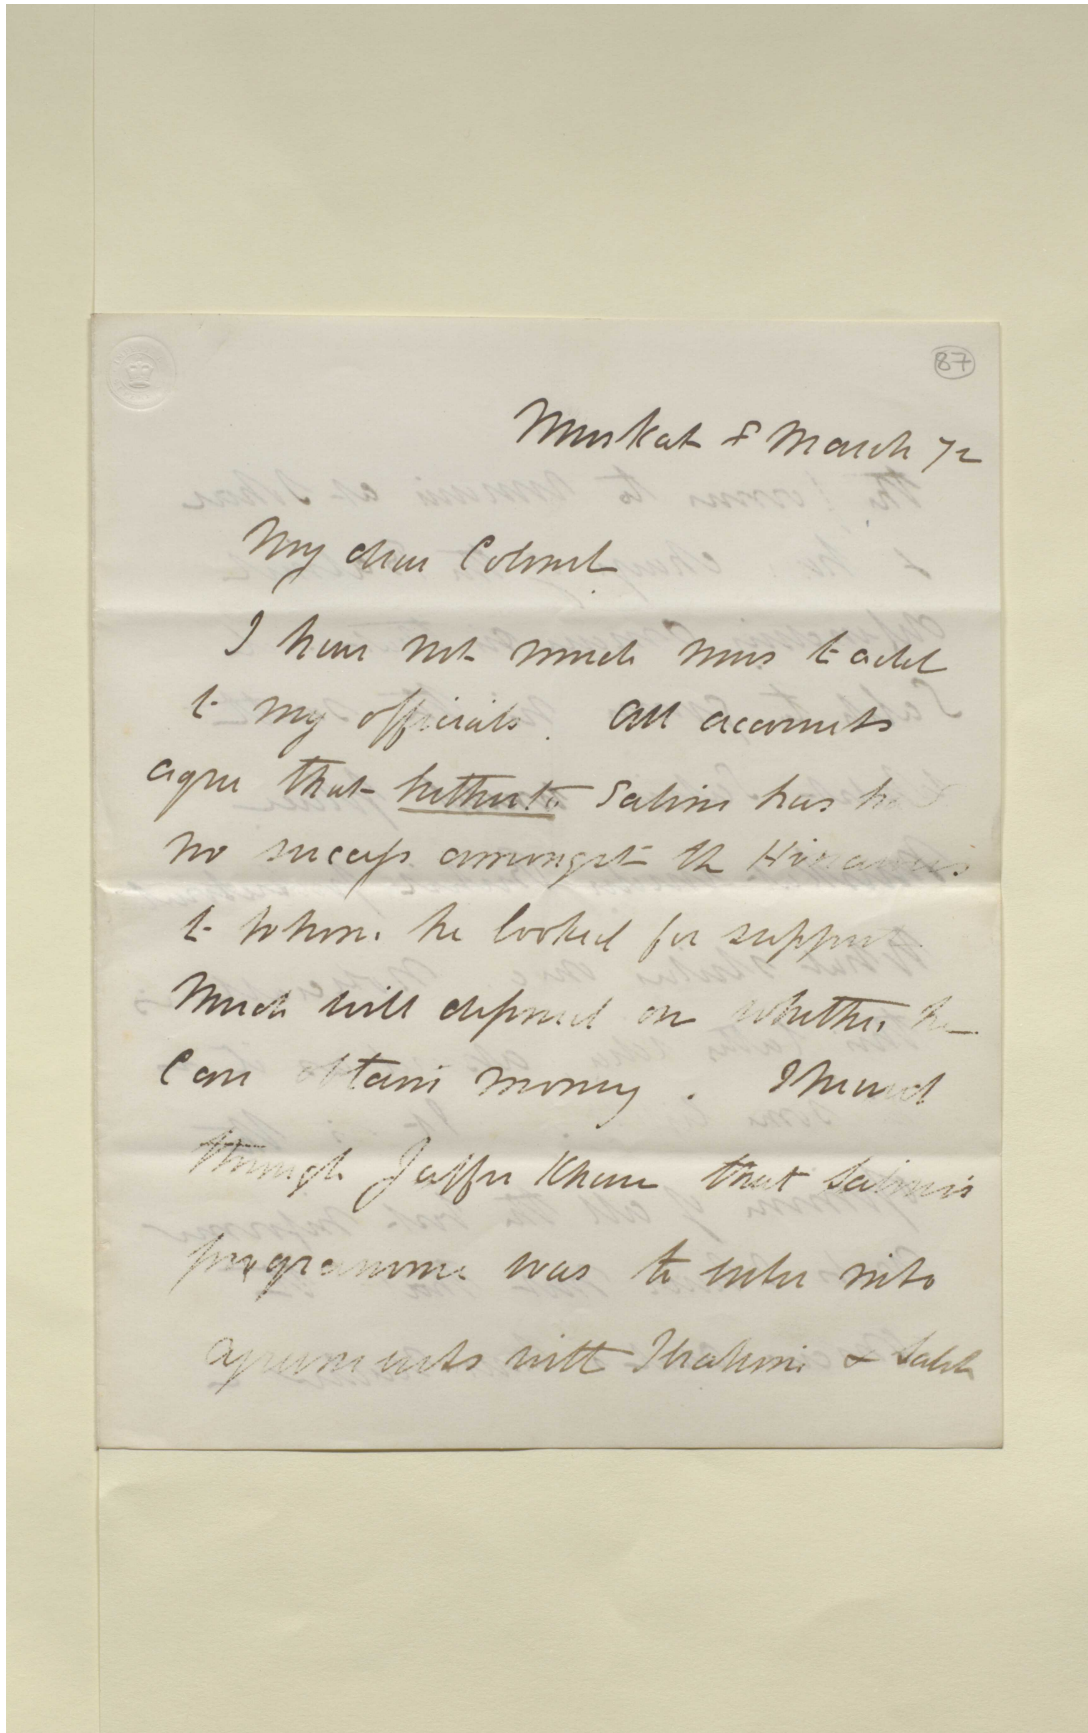 87
Muskat 8 March 72
My dear Colonel
I have not much news to add
to my officials. All accounts
agree that hitherto Salim has had
no success amongst the Hinawis
to whom he looked for support.
Much will depend on whether he
can obtain money. I heard
through Jaffer Khan that Salim's
programme was to enter into
agreements with Ibrahim & Saleh